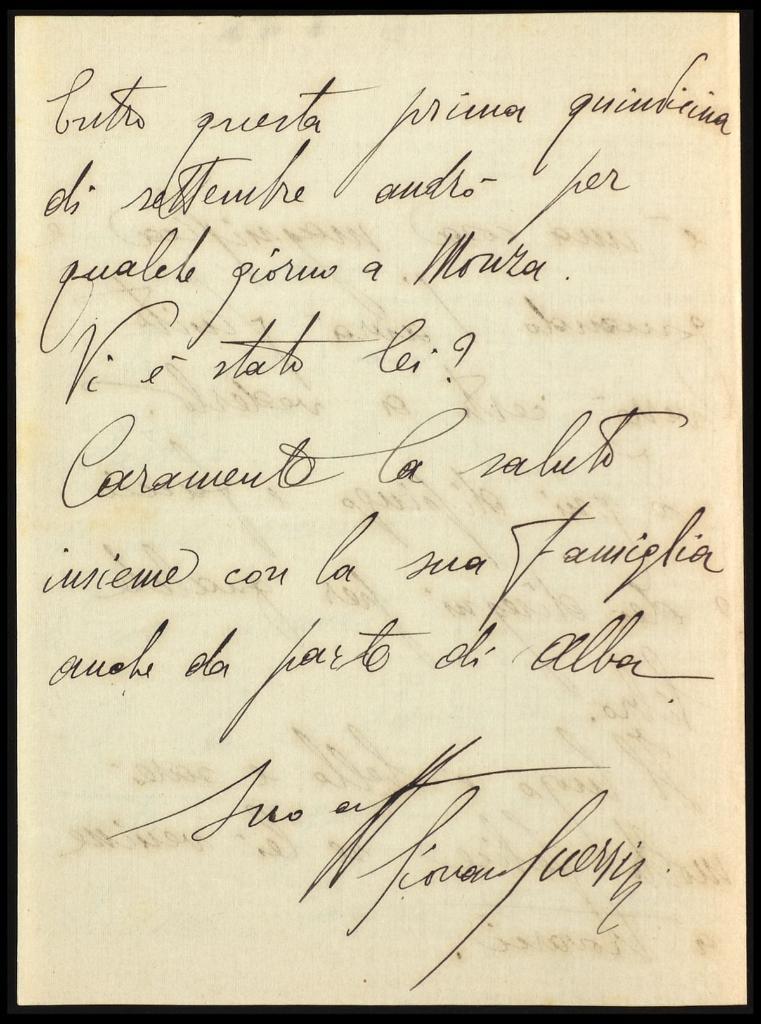 Entro questa prima quindicina
di settembre andrò per
qualche giorno a Monza.
Vi è stato lei?
Caramente la saluto
insieme con la sua Famiglia
anche da parte di Alba
Suo aff
Giovan Guerrini